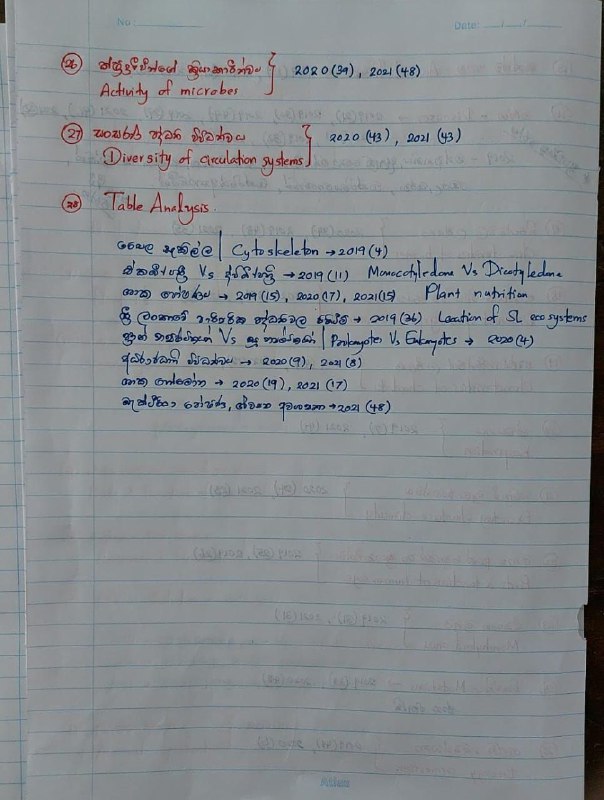 No:
Date: __/__/__
26 ක්ෂුද්‍රජීවීන්ගේ ක්‍රියාකාරීත්වය } 2020 (39), 2021 (48)
Activity of microbes
27 සංසරණ පද්ධති විවිධත්වය } 2020 (43), 2021 (43)
Diversity of circulation systems
28 Table Analysis.
සෛල සැකිල්ල | Cytoskeleton → 2019 (4)
ඒකබීජපත්‍රී Vs ද්විබීජපත්‍රී → 2019 (11) Monocotyledone Vs Dicotyledone
ශාක පෝෂණය → 2019 (15), 2020 (17), 2021 (15) Plant nutrition
ශ්‍රී ලංකාවේ පාරිසරික පද්ධතිවල පිහිටීම → 2019 (36) Location of SL eco systems
ප්‍රාග් න්‍යෂ්ටිකයින් Vs සූ න්‍යෂ්ටිකයින් | Prokaryotes Vs Eukaryotes → 2020 (4)
2020 (9), 2021 (8)
ශාක හෝමෝන → 2020 (19), 2021 (17)
බැක්ටීරියා පෝෂණ, අවශ්‍යතා → 2021 (48)
Atlas